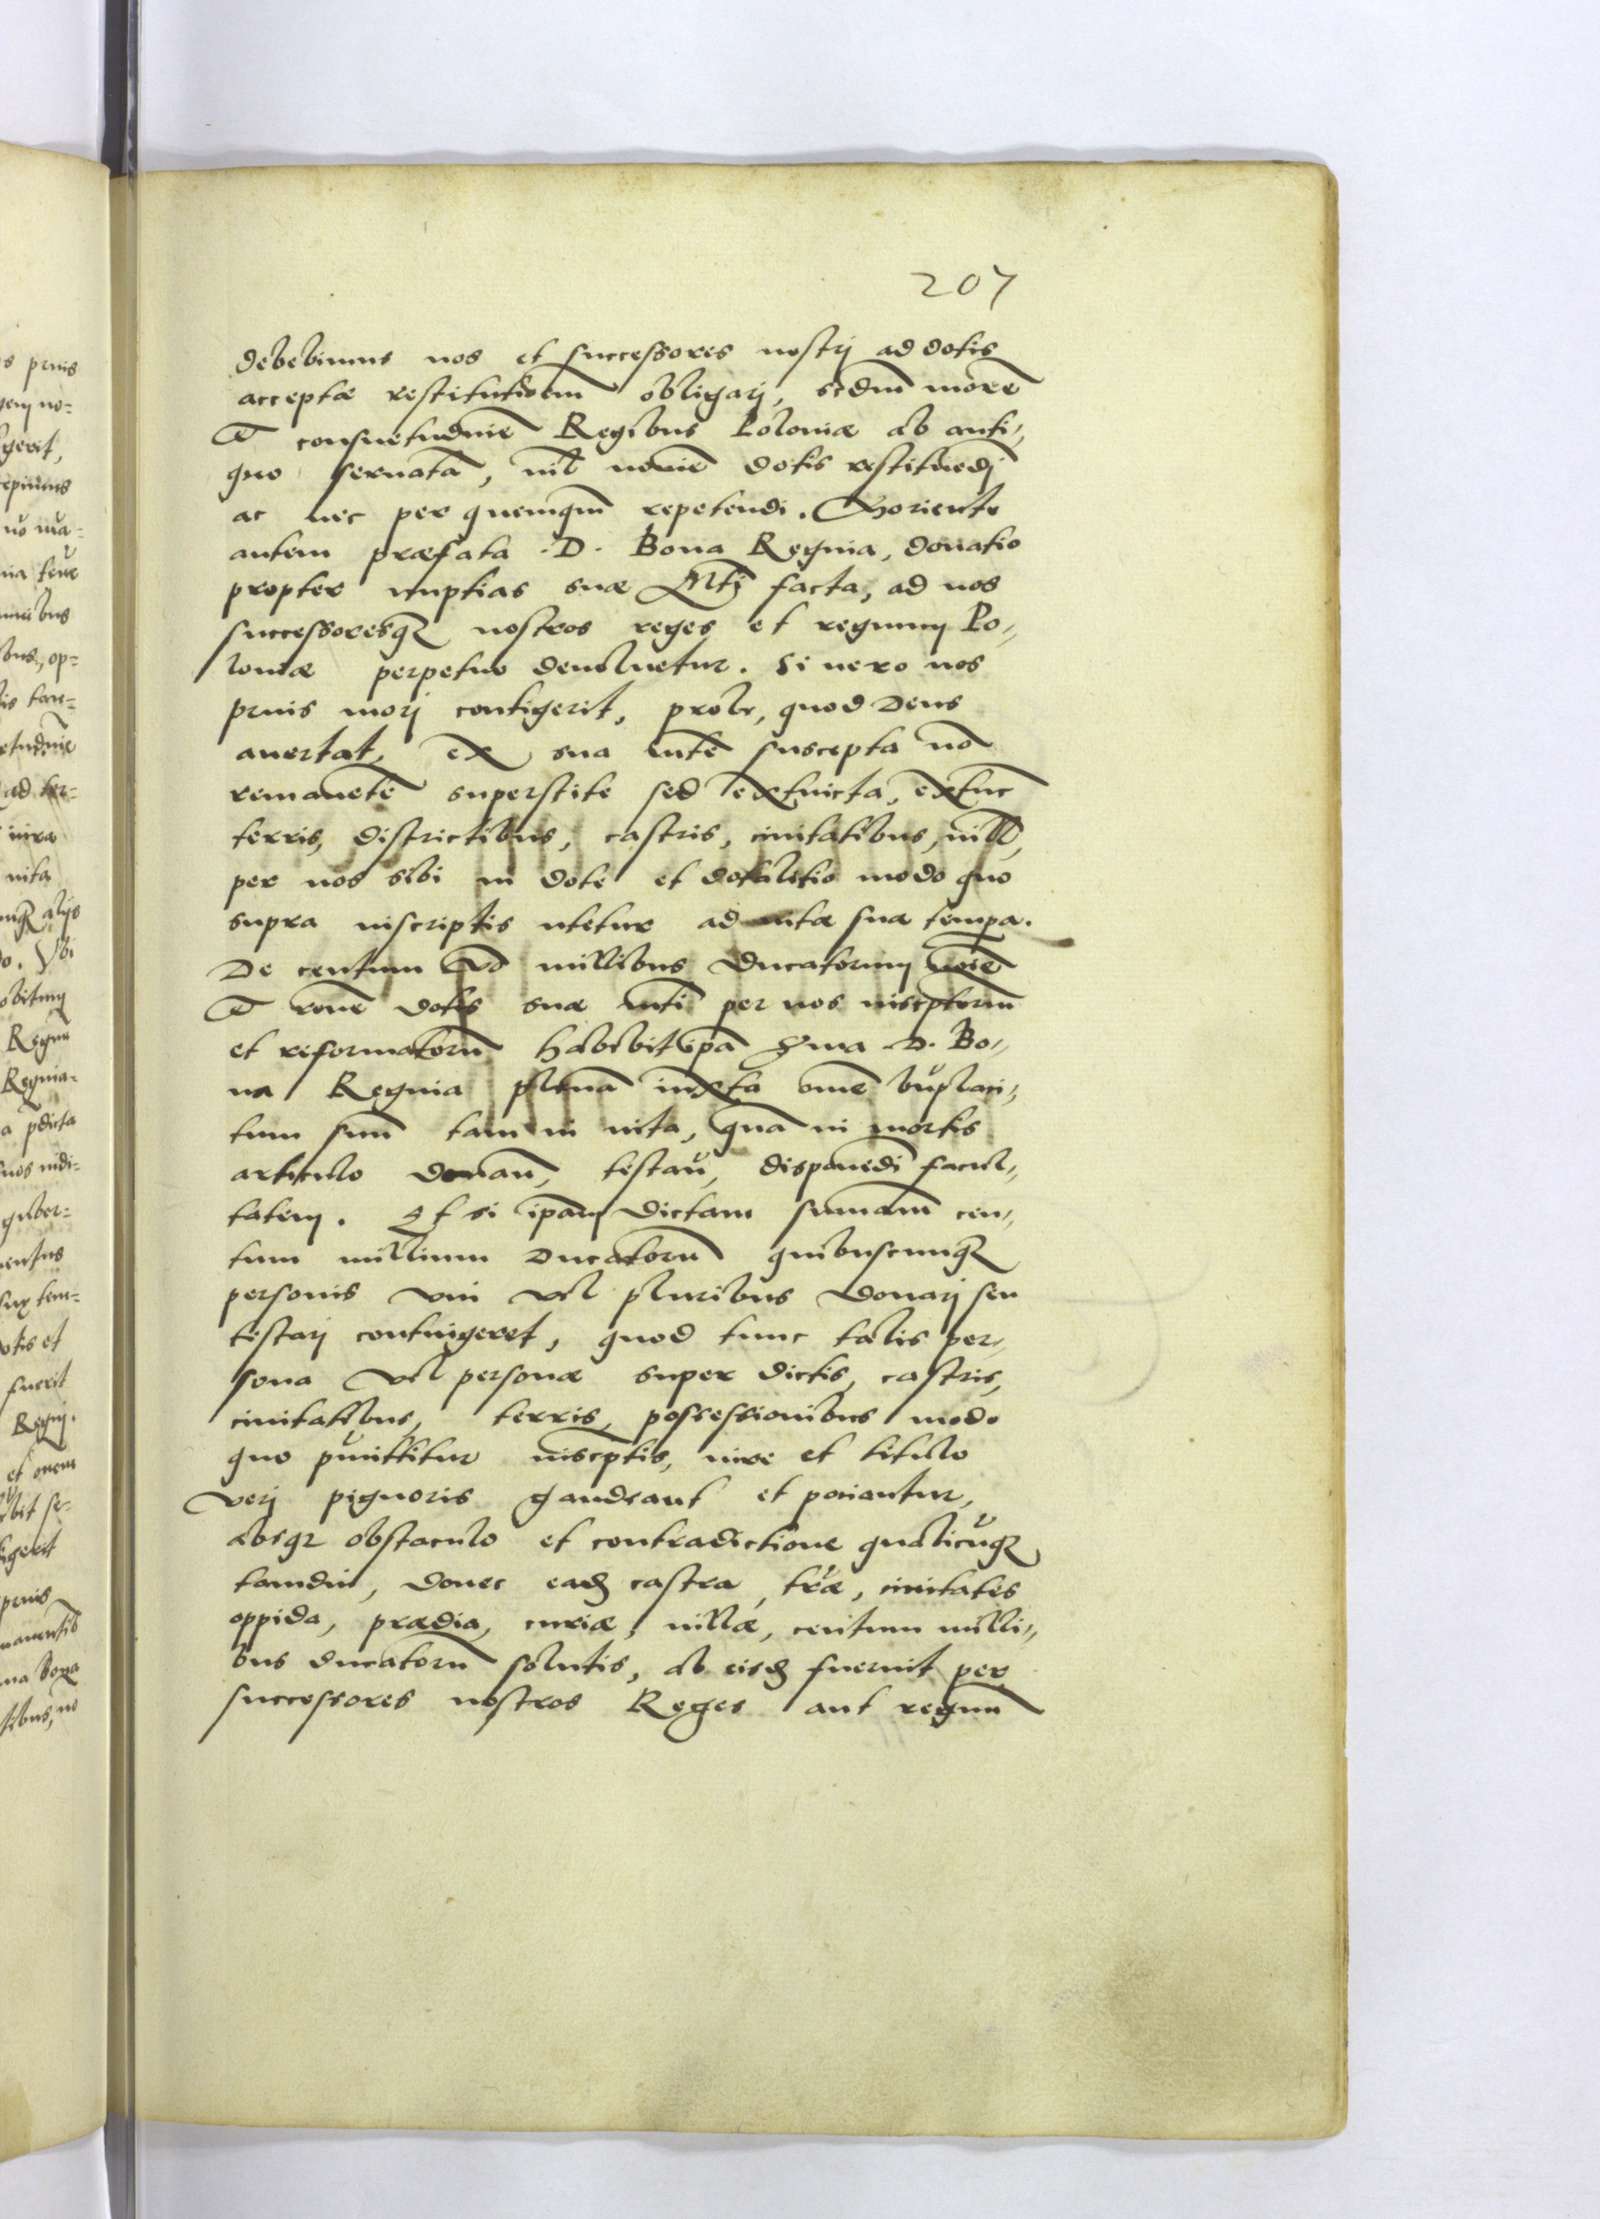 207
debebimus nos et successores nostrj ad dotis
acceptæ restitutioem̃ obligarj, scdm̃ morẽ
& consuetudinẽ Regibus Poloniæ ab anti„
quo seruatã, dotis restituẽdj
ac nec per quemqm̃ repetendi. Moriente
autem præfata .D. Bona Regina, donatio
propter nuptias suæ Mtj̃ facta, ad nos
successoresqȝ nostros reges et regnum Po„
loniæ perpetuo deuoluetur. Si uero nos
prius morj contigerit, prole, quod Deus
auertat, ex sua mtẽ suscepta nõ
remanẽte superstite sed extincta, extũc
terris, districtibus, castris, ciuitatibus, uill̃,
per nos sibi in dote et dotalitio modo quo
supra inscriptis utetur ad uitæ suæ tempa.
De centum millibus ducatorum noiẽ
& roñe dotis suæ mtĩ per nos inscptorũ
et reformatorũ habebit ipã D. Bo„
na Regina plenã iuxta omẽ buplaci„
tum suũ tam in uita, quã in mortis
articulo donañ, testañ, disponẽdi facul„
tatem. Et si ipam dictam sum̃am cen„
tum millium ducatorũ quibuscunqȝ
personis vni vel pluribus donarj seu
testarj contingeret, quod tunc talis per„
sona vel personæ super dictis, castris,
ciuitatibus, terris, possessionibus modo
quo pmittitur inscptis, iure et titulo
verj pignoris gaudeant et potiantur,
absqȝ obstaculo et contradictione qualicũqȝ
tamdiu, donec eadȝ castra, tr̃æ, ciuitates
oppida, prædia, curiæ, uillæ, centum milli„
bus ducatorũ solutis, ab eisdȝ fuerint per
successores nostros Reges aut regnũ